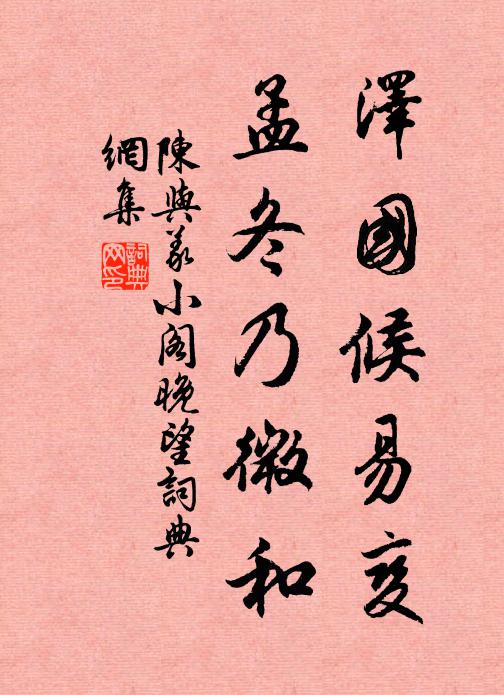 澤國候易變
孟冬乃微和
陳與義小閣晚望詞典
網集
詞典
網印